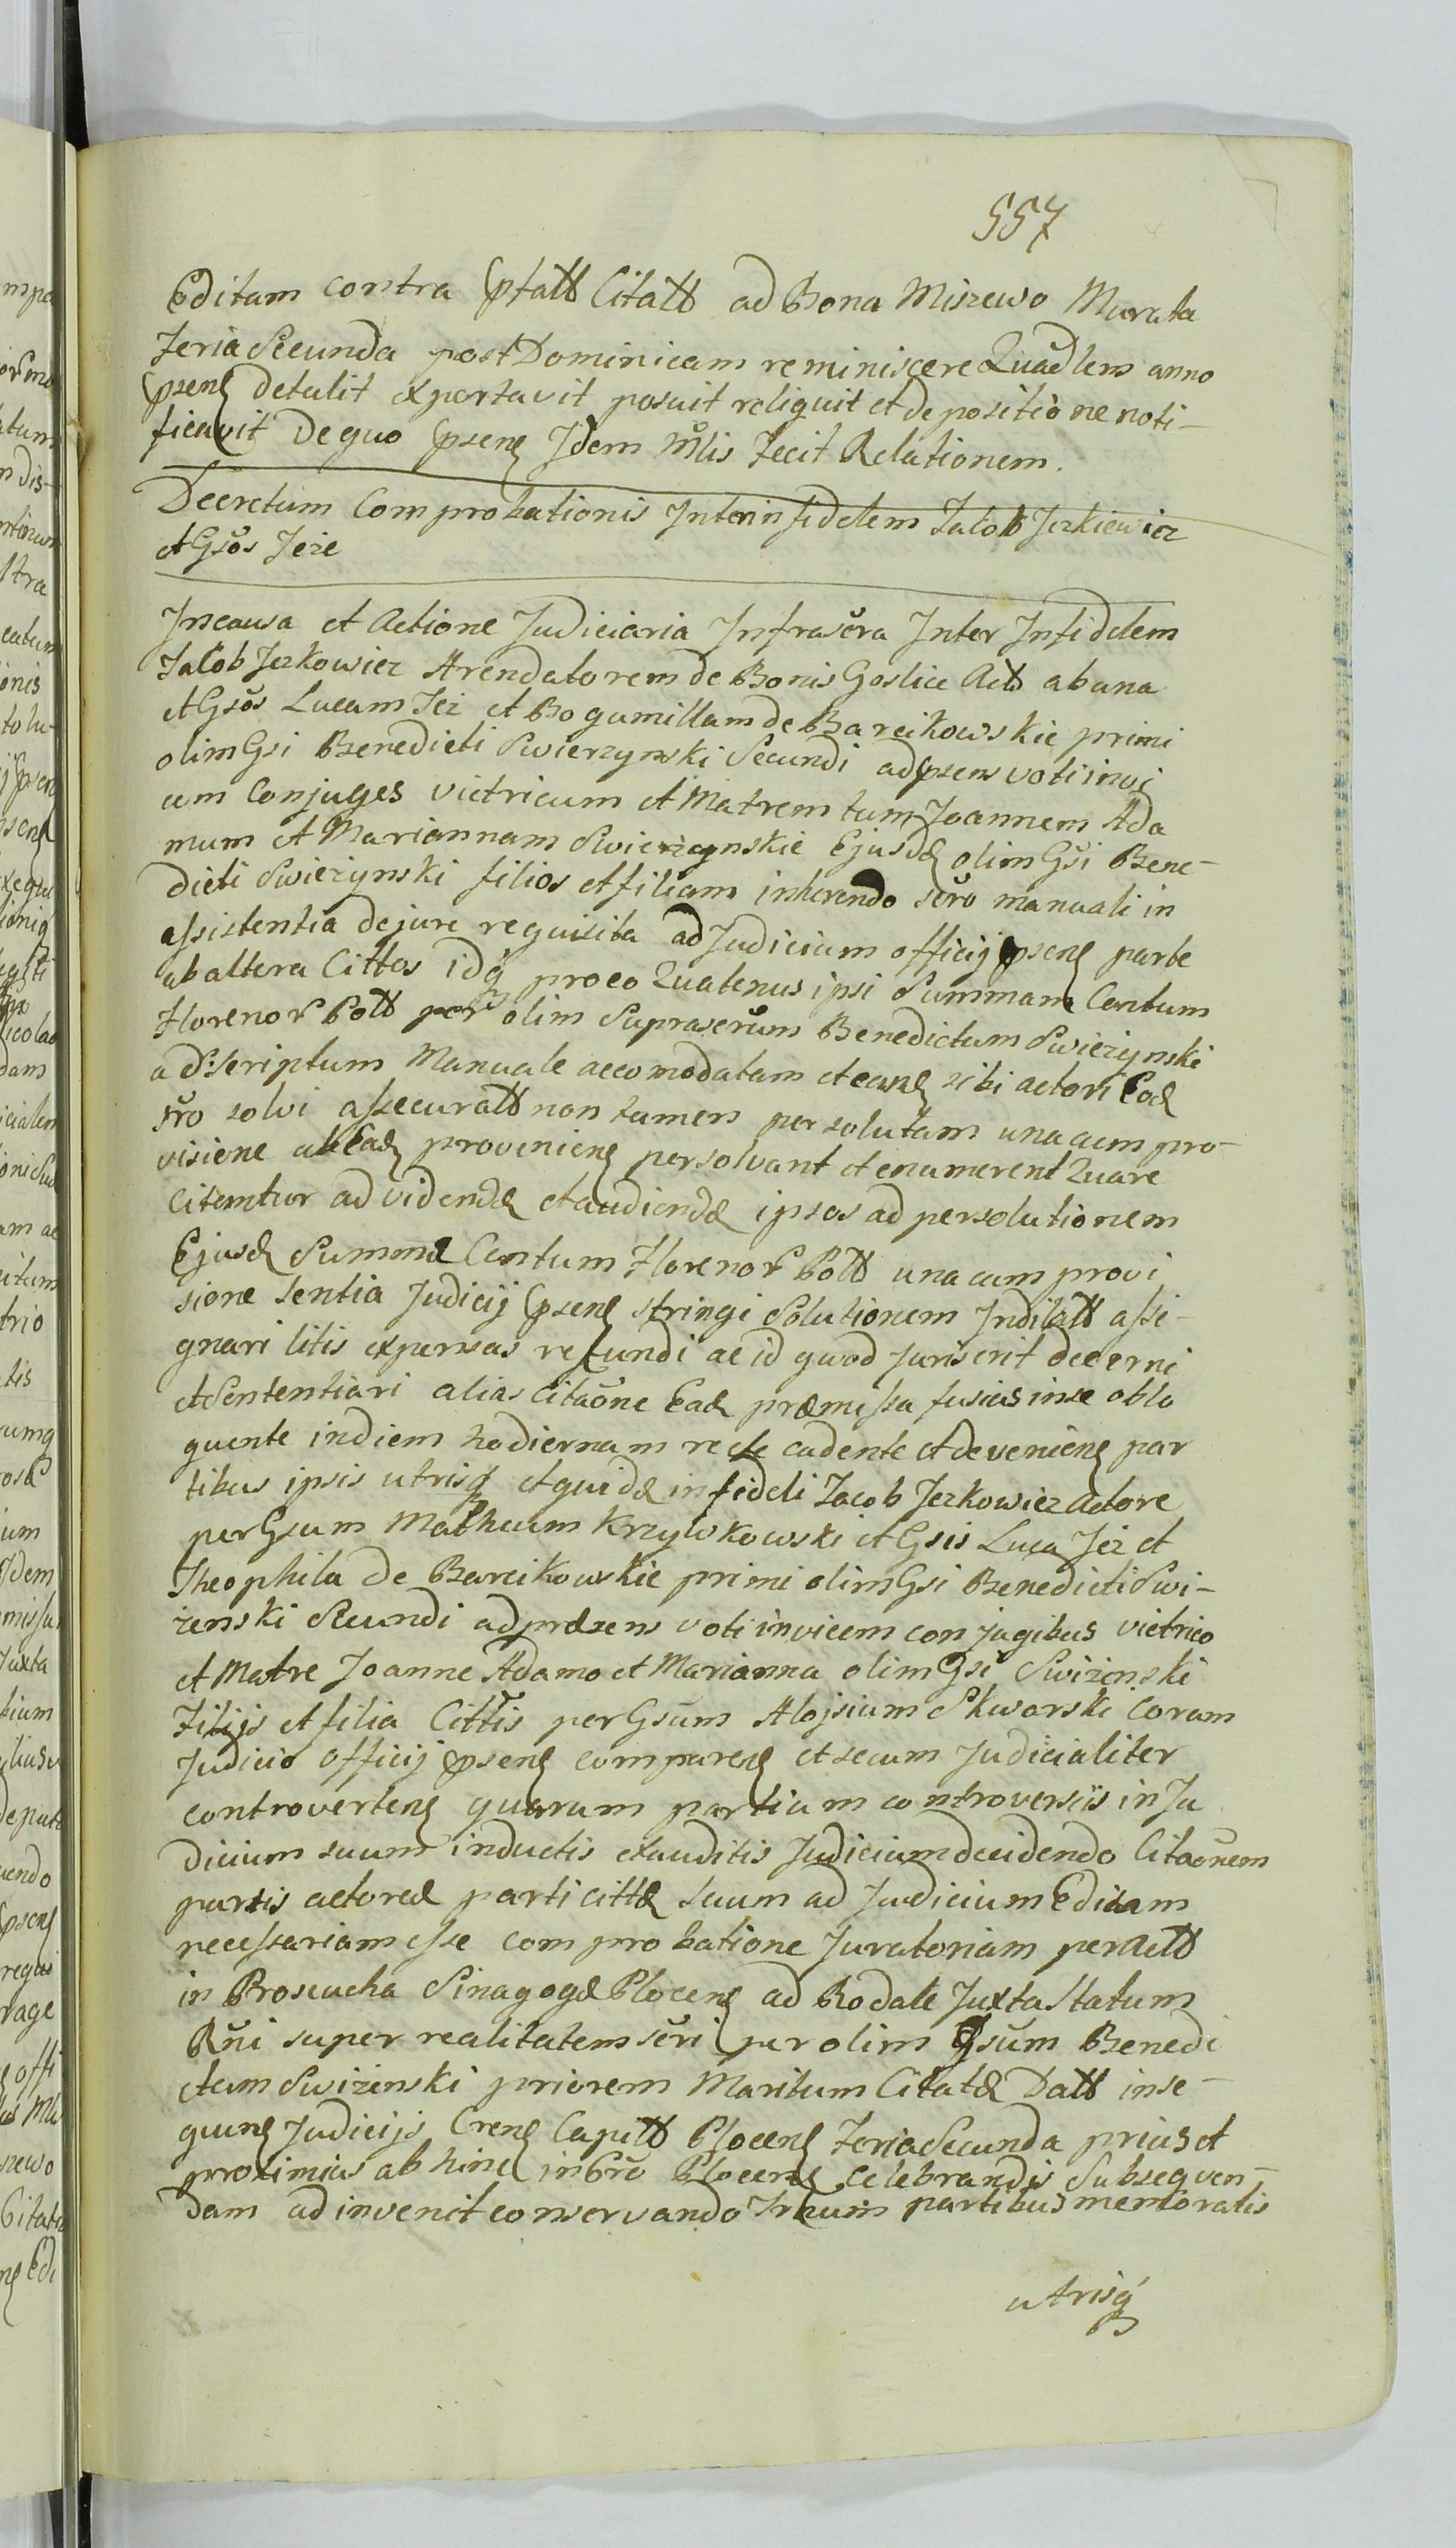 557
Editam contra Pstatt Citatt ad Bona Miszewo Murata
Feria Secunda post Dominicam reminiscere Quadlem anno
psene Detulit exportavit posuit reliquit et de positione noti-
ficavit De quo psene Idem Mlis Fecit Relationem.
Decretum Comprobationis Inter infidelem Jacob Jezkiewicz
et Gsos Jeże
In causa et Actione Judiciaria Infrascra Inter Infidelem
Jacob Jezkowicz Arendatorem de Bonis Goslice Act ab una
et Gsos Lucam Jeż et Bogumillam de Barcikowskie primi
olim Gsi Benedicti Swierzynski Secundi ad psens voti invi
cem Conjuges vitricum et Matrem tum Joannem Ada
mum et Mariannam Swierzynskie Ejusd olim Gsi Bene-
dicti Swierzynski filios et filiam inherendo scro manuali in
assistentia de jure requisita ad Judicium officij psene parte
ab altera Cittos idq pro eo Quatenus ipsi Summam Centum
Florenor Poll per olim Suprascrum Benedictum Swierzynski
ad Scriptum Manuale accomodatam et eane sibi actori Eod
sro solvi assecuratt non tamen persolutam una cum pro-
visione ab Ead proveniene persolvant et enumerent Quare
Citantur ad vidend et audiend ipsos ad persolutionem
Ejusd Summæ Centum Florenor Poll una cum provi
sione sentia Judicij psene stringi Solutionem Indilatt assi-
gnari litis expensas refundi ac id quod juris erit decerni
et Sententiari alias Citaone Ead præmissa fusius in se oblo
quente in diem hodiernam recte cadente et deveniene par
tibus ipsis utrisq et quid infideli Jacob Jezkowicz Actore
per Gsum Matheum Krzywkowski et Gsis Luca Jeż et
Theophila de Barcikowskie primi olim Gsi Benedicti Swi-
żenski Secundi ad præsens voti invicem conjugibus victrico
et Matre Joanne Adamo et Marianna olim Gsi Swiżenski
Filijs et filia Cittis per Gsum Alojsium Skwarski Coram
Judicio officij psene comparene et secum Judicialiter
controvertene quarum partium controversiis in Ju
dicium suum inductis et auditis Judicium decidendo Citaonem
partis actoreæ parti cittæ suum ad Judicium Editam
necessariam esse comprobatione Juratoriam per Actt
in Proseucha Sinagogæ Plocene ad Rodale Juxta Statum
Rni super realitatem scri per olim Gsum Benedi
ctum Swiżenski priorem Maritum Citatæ Datt inse-
quene Judicijs Crene Capitt Plocene Feria Secunda prius et
proximius ab hinc in Cro Plocene celebrandis Subsequen-
dam adinvenit conservando Irhum partibus memoratis
utrisq